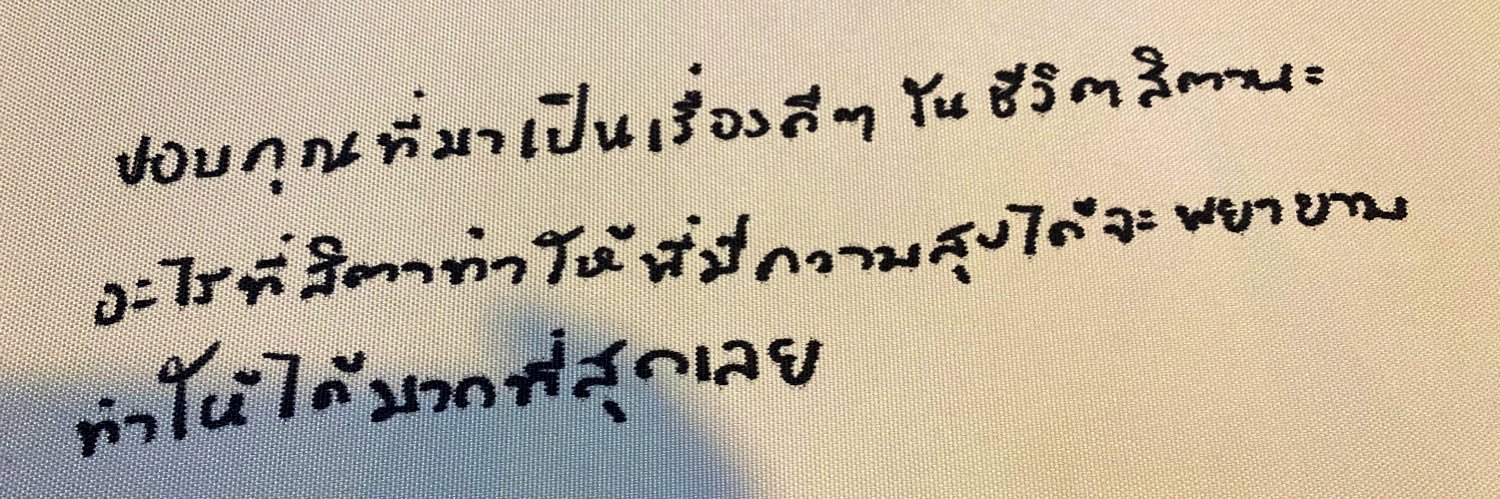 ขอบคุณที่มาเป็นเรื่องดีๆ ในชีวิตสิตานะ
อะไรที่สิตาทำให้พี่มีความสุขได้จะพยายาม
ทำให้ได้มากที่สุดเลย